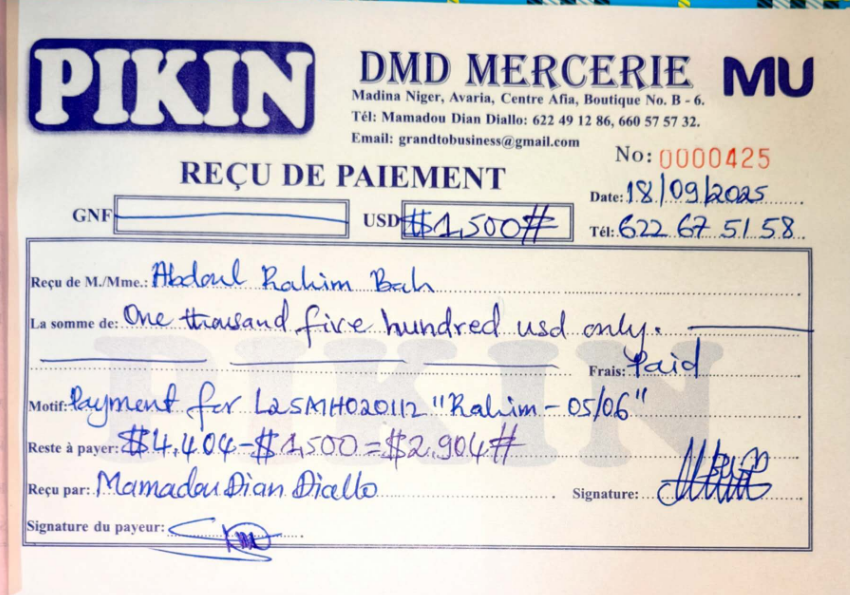 PIKIN
DMD MERCERIE MU
Madina Niger, Avaria, Centre Afia, Boutique No. B - 6.
Tél: Mamadou Dian Diallo: 622 49 12 86, 660 57 57 32.
Email: grandtobusiness@gmail.com
No: 0000425
REÇU DE PAIEMENT
Date: 18/09/2025
GNF USD #$1,500#
Tél: 622 67 51 58
Reçu de M./Mme.: Abdoul Rahim Bah
La somme de: One thousand five hundred usd only.
Frais: Paid
Motif: Payment for L2SMH020112 "Rahim - 05/06"
Reste à payer: $4,404 - $1,500 = $2,904#
Reçu par: Mamadou Dian Diallo
Signature:
Signature du payeur:
PIKIN